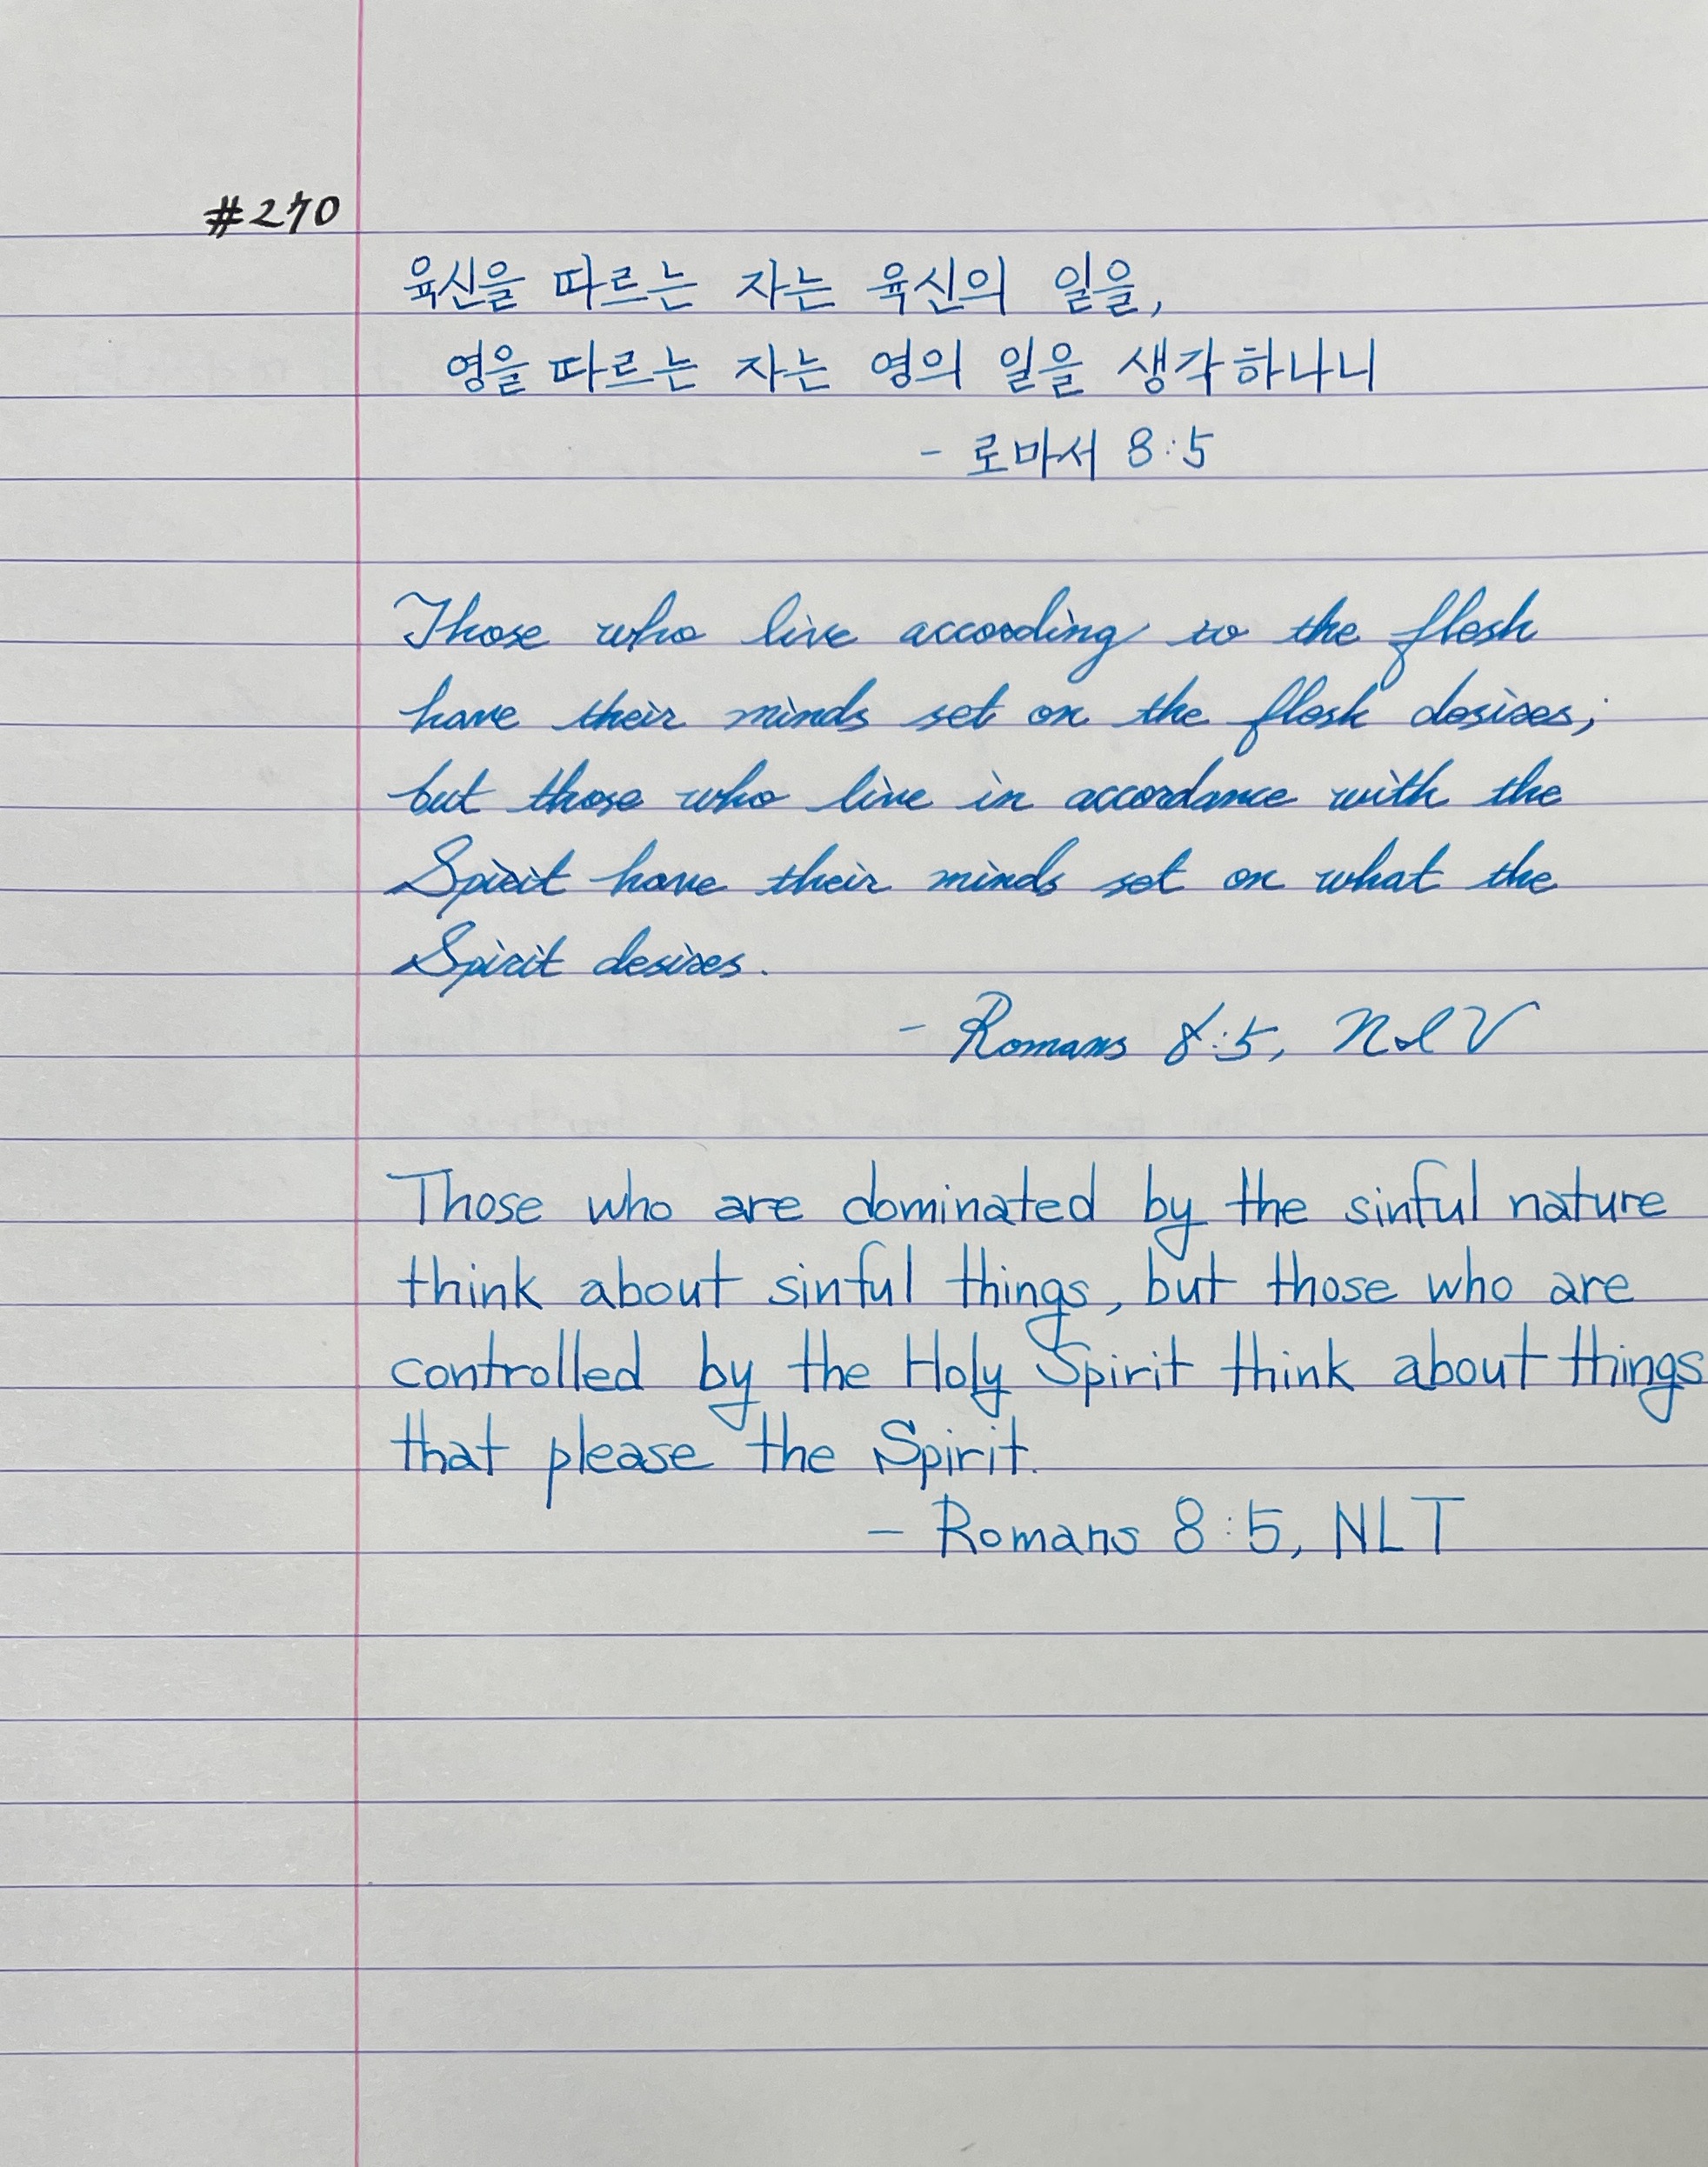 #270
육신을 따르는 자는 육신의 일을,
영을 따르는 자는 영의 일을 생각하나니
- 로마서 8:5
Those who live according to the flesh
have their minds set on the flesh desires;
but those who live in accordance with the
Spirit have their minds set on what the
Spirit desires.
- Romans 8:5, NIV
Those who are dominated by the sinful nature
think about sinful things, but those who are
controlled by the Holy Spirit think about things
that please the Spirit.
- Romans 8:5, NLT